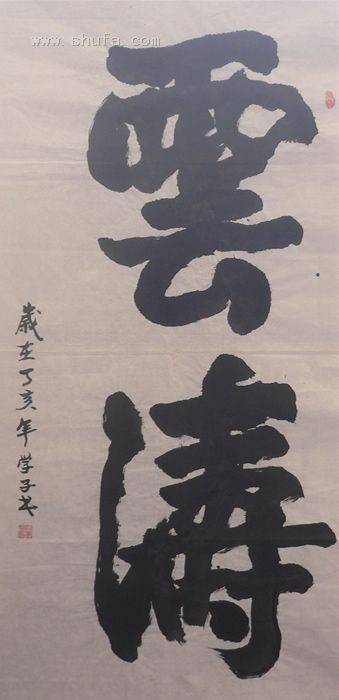 www.shufa.com
雲濤
歲在丁亥年学子书